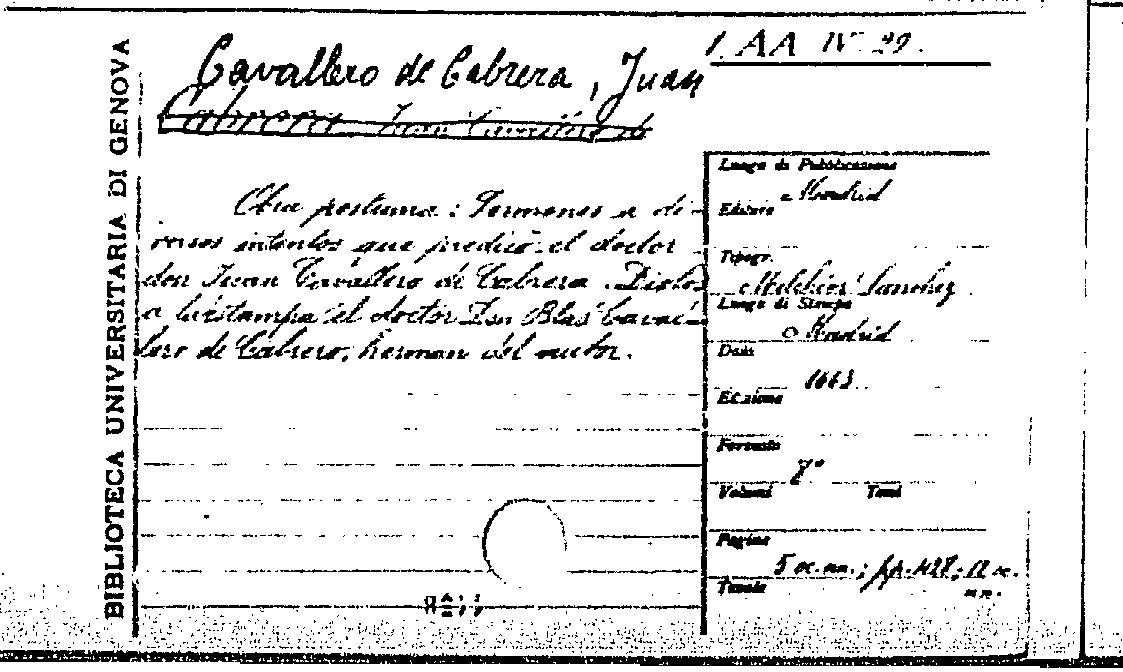 BIBLIOTECA UNIVERSITARIA DI GENOVA
1. AA IV 29.
Cavallero de Cabrera, Juan
Cabrera Juan Cavallero de
Obra postuma: Sermones a di-
versos intentos que predicò el doctor
don Juan Cavallero de Cabrera. Diolos
a la estampa el doctor Don Blas Caval-
lero de Cabrero, herman del autor.
Luogo di Pubblicazione
Madrid
Editore
Tipogr.
Melchior Sanchez
Luogo di Stampa
Madrid
Data
1663
Edizione
Formato
Volumi Tomi
Pagine
5 cc. nn.; pp. 428; 12 cc.
nn.
Tavole